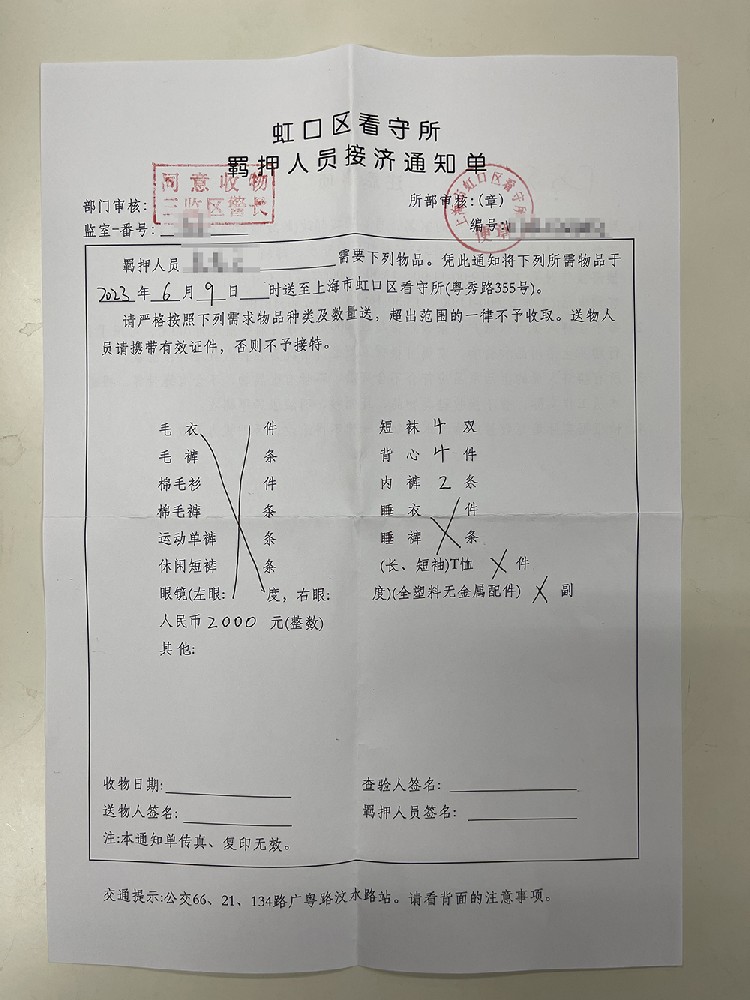 虹口区看守所
羁押人员接济通知单
同意收物
三监区警长
部门审核:
所部审核:(章)
监室-番号:
编号:
羁押人员 需要下列物品。凭此通知将下列所需物品于
2023年6月9日 时送至上海市虹口区看守所(粤秀路355号)。
请严格按照下列需求物品种类及数量送,超出范围的一律不予收取。送物人
员请携带有效证件,否则不予接待。
毛衣 件 短袜4双
毛裤 条 背心4件
棉毛衫 件 内裤2条
棉毛裤 条 睡衣 件
运动单裤 条 睡裤 条
休闲短裤 条 (长、短袖)T恤 件
眼镜(左眼: 度,右眼: 度)(全塑料无金属配件) 副
人民币2000元(整数)
其他:
收物日期: 查验人签名:
送物人签名: 羁押人员签名:
注:本通知单传真、复印无效。
交通提示:公交66、21、134路广粤路汶水路站。请看背面的注意事项。